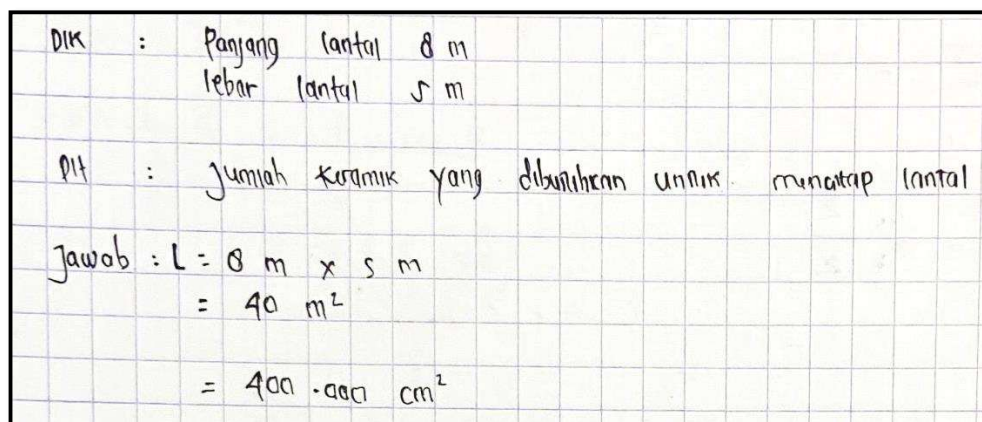 DIK : Panjang lantai 8 m
lebar lantai 5 m
Dit : Jumlah keramik yang dibutuhkan untuk menutup lantai
Jawab : L = 8 m x 5 m
= 40 m²
= 400.000 cm²